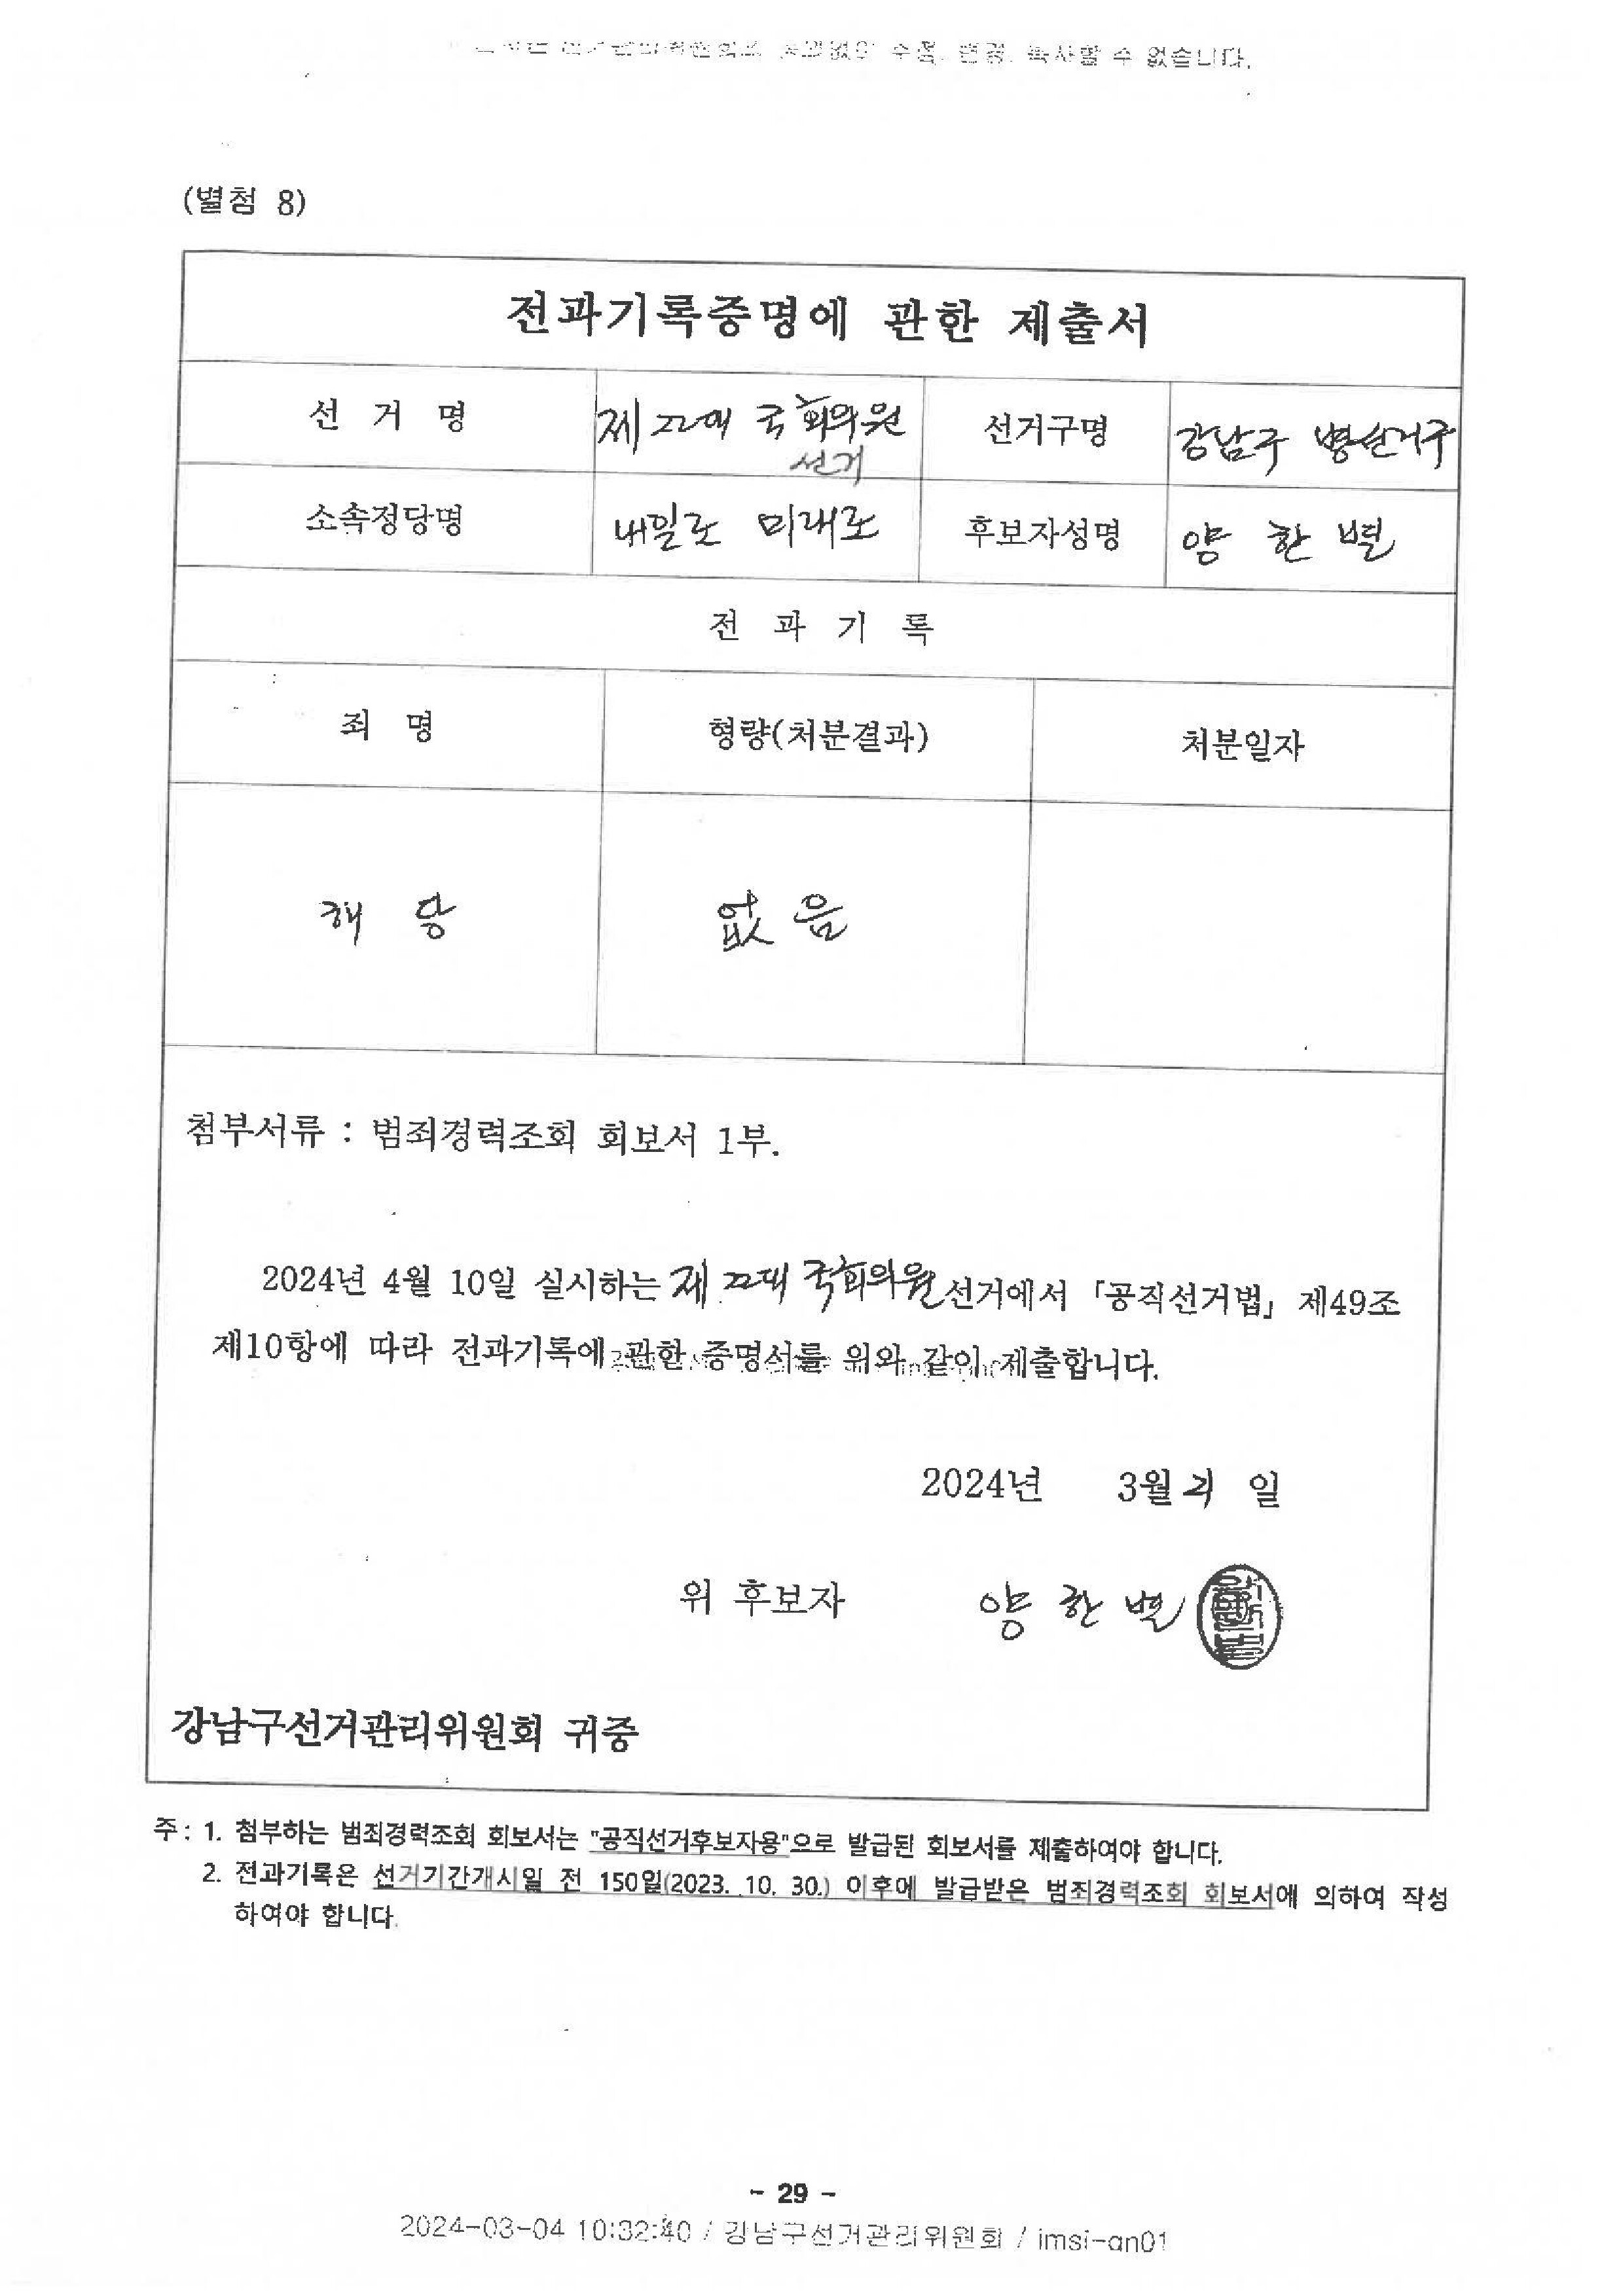 수정, 변경, 복사할 수 없습니다.
(별첨 8)
전과기록증명에 관한 제출서
선 거 명 제22대 국회의원 선거 선거구명 강남구 병선거구
소속정당명 내일로 미래로 후보자성명 양 한 별
전 과 기 록
죄 명 형량(처분결과) 처분일자
해 당 없 음
첨부서류 : 범죄경력조회 회보서 1부.
2024년 4월 10일 실시하는 제22대 국회의원선거에서 「공직선거법」 제49조
제10항에 따라 전과기록에 관한 증명서를 위와 같이 제출합니다.
2024년 3월 21 일
위 후보자 양 한 별
강남구선거관리위원회 귀중
주 : 1. 첨부하는 범죄경력조회 회보서는 "공직선거후보자용"으로 발급된 회보서를 제출하여야 합니다.
2. 전과기록은 선거기간개시일 전 150일(2023. 10. 30.) 이후에 발급받은 범죄경력조회 회보서에 의하여 작성
하여야 합니다.
- 29 -
2024-03-04 10:32:40 / 강남구선거관리위원회 / imsi-an01